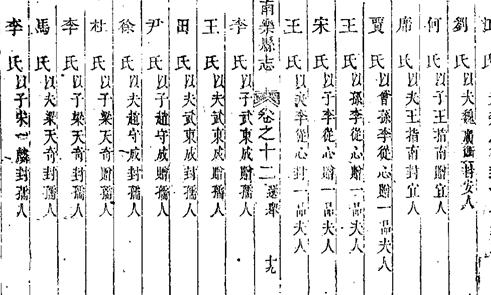 氏
劉氏以夫 封安人
何氏以子王指南贈宜人
席氏以夫王指南封宜人
賈氏以曾孫李從心贈一品夫人
王氏以孫李從心贈一品夫人
宋氏以子李從心贈一品夫人
王氏以夫李從心封一品夫人
南樂縣志 卷之十二 選舉 十九
李氏以子武東成贈孺人
王氏以夫武東成贈孺人
田氏以夫武東成封孺人
尹氏以子趙守成贈孺人
徐氏以夫趙守成封孺人
杜氏以子梁天奇贈孺人
李氏以夫梁天奇贈孺人
馬氏以夫梁天奇封孺人
李氏以子宋一 封孺人